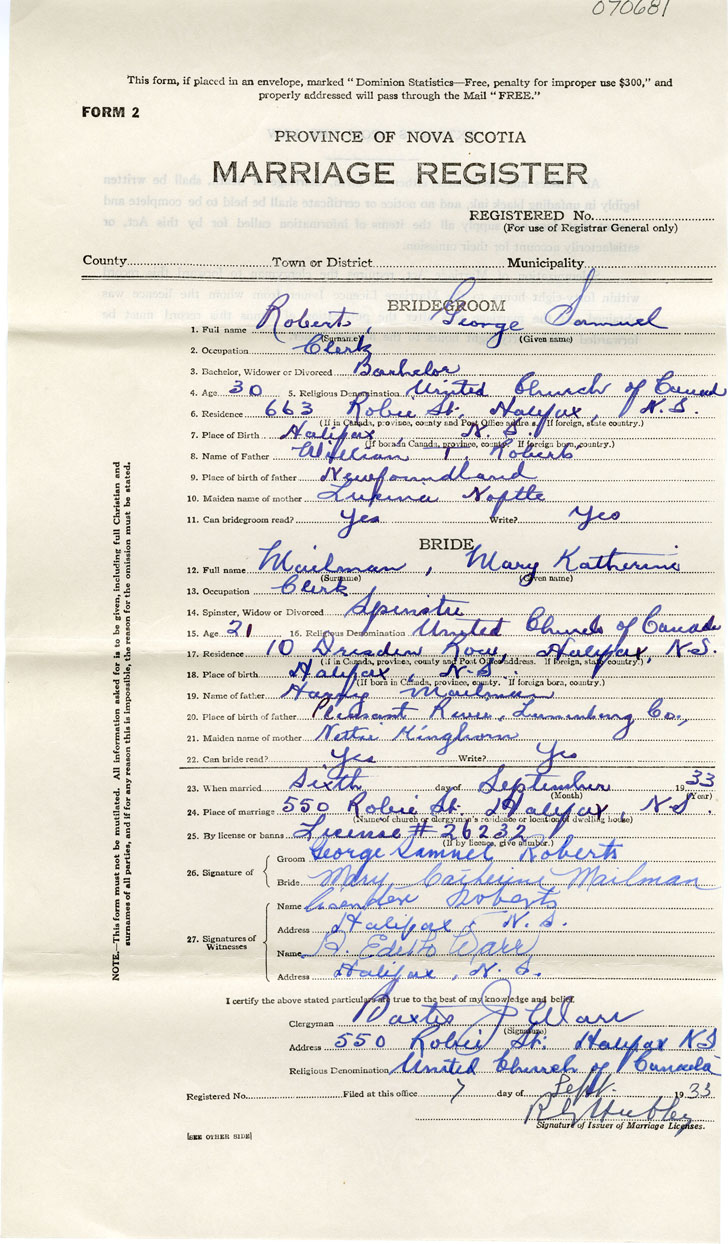 070681
This form, if placed in an envelope, marked "Dominion Statistics—Free, penalty for improper use $300," and
properly addressed will pass through the Mail "FREE."
FORM 2
PROVINCE OF NOVA SCOTIA
MARRIAGE REGISTER
REGISTERED No.
(For use of Registrar General only)
County Town or District Municipality
BRIDEGROOM
1. Full name Roberts, George Samuel
(Surname) (Given name)
2. Occupation Clerk
3. Bachelor, Widower or Divorced Bachelor
4. Age 30 5. Religious Denomination United Church of Canada
6. Residence 663 Robie St, Halifax, N.S.
(If in Canada, province, county and Post Office address. If foreign, state country.)
7. Place of Birth Halifax, N.S.
(If born in Canada, province, county. If foreign born, country.)
8. Name of Father William T. Roberts
9. Place of birth of father Newfoundland
10. Maiden name of mother
11. Can bridegroom read? Yes Write? Yes
BRIDE
12. Full name Mailman, Mary Katherine
(Surname) (Given name)
13. Occupation Clerk
14. Spinster, Widow or Divorced Spinster
15. Age 21 16. Religious Denomination United Church of Canada
17. Residence 10 Dresden Row, Halifax, N.S.
(if in Canada, province, county and Post Office address. If foreign, state country.)
18. Place of birth Halifax, N.S.
(If born in Canada, province, county. If foreign born, country.)
19. Name of father Harry Mailman
20. Place of birth of father Pleasant River, Lunenburg Co.,
21. Maiden name of mother Nettie Kinghorn
22. Can bride read? Yes Write? Yes
23. When married Sixth day of September 1933
(Month) (Year)
24. Place of marriage 550 Robie St. Halifax, N.S.
(Name of church or clergyman's residence or location of dwelling house)
25. By license or banns License # 26232
(If by licence, give number.)
26. Signature of
Groom George Samuel Roberts
Bride Mary Catherine Mailman
27. Signatures of Witnesses
Name Roberts
Address Halifax, N.S.
Name H. Edith Warr
Address Halifax, N.S.
I certify the above stated particulars are true to the best of my knowledge and belief.
Clergyman Baxter J Warr
(Signature)
Address 550 Robie St. Halifax NS
Religious Denomination United Church of Canada
Registered No. Filed at this office 7 day of Sept. 1933
Signature of Issuer of Marriage Licenses.
[SEE OTHER SIDE]
NOTE.—This form must not be mutilated. All information asked for is to be given, including full Christian and
surnames of all parties, and if for any reason this is impossible, the reason for the omission must be stated.